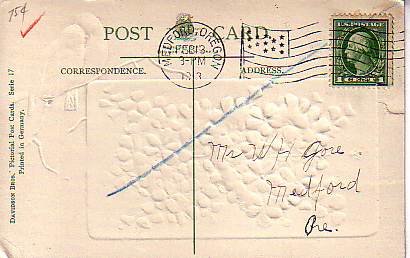 75¢
POST CARD.
MEDFORD, OREGON
FEB 13
3-PM
CORRESPONDENCE.
ADDRESS.
U.S. POSTAGE
Mr W H Gore.
Medford
Ore.
DAVIDSON BROS.' Pictorial Post Cards. Serie 17
Printed in Germany.